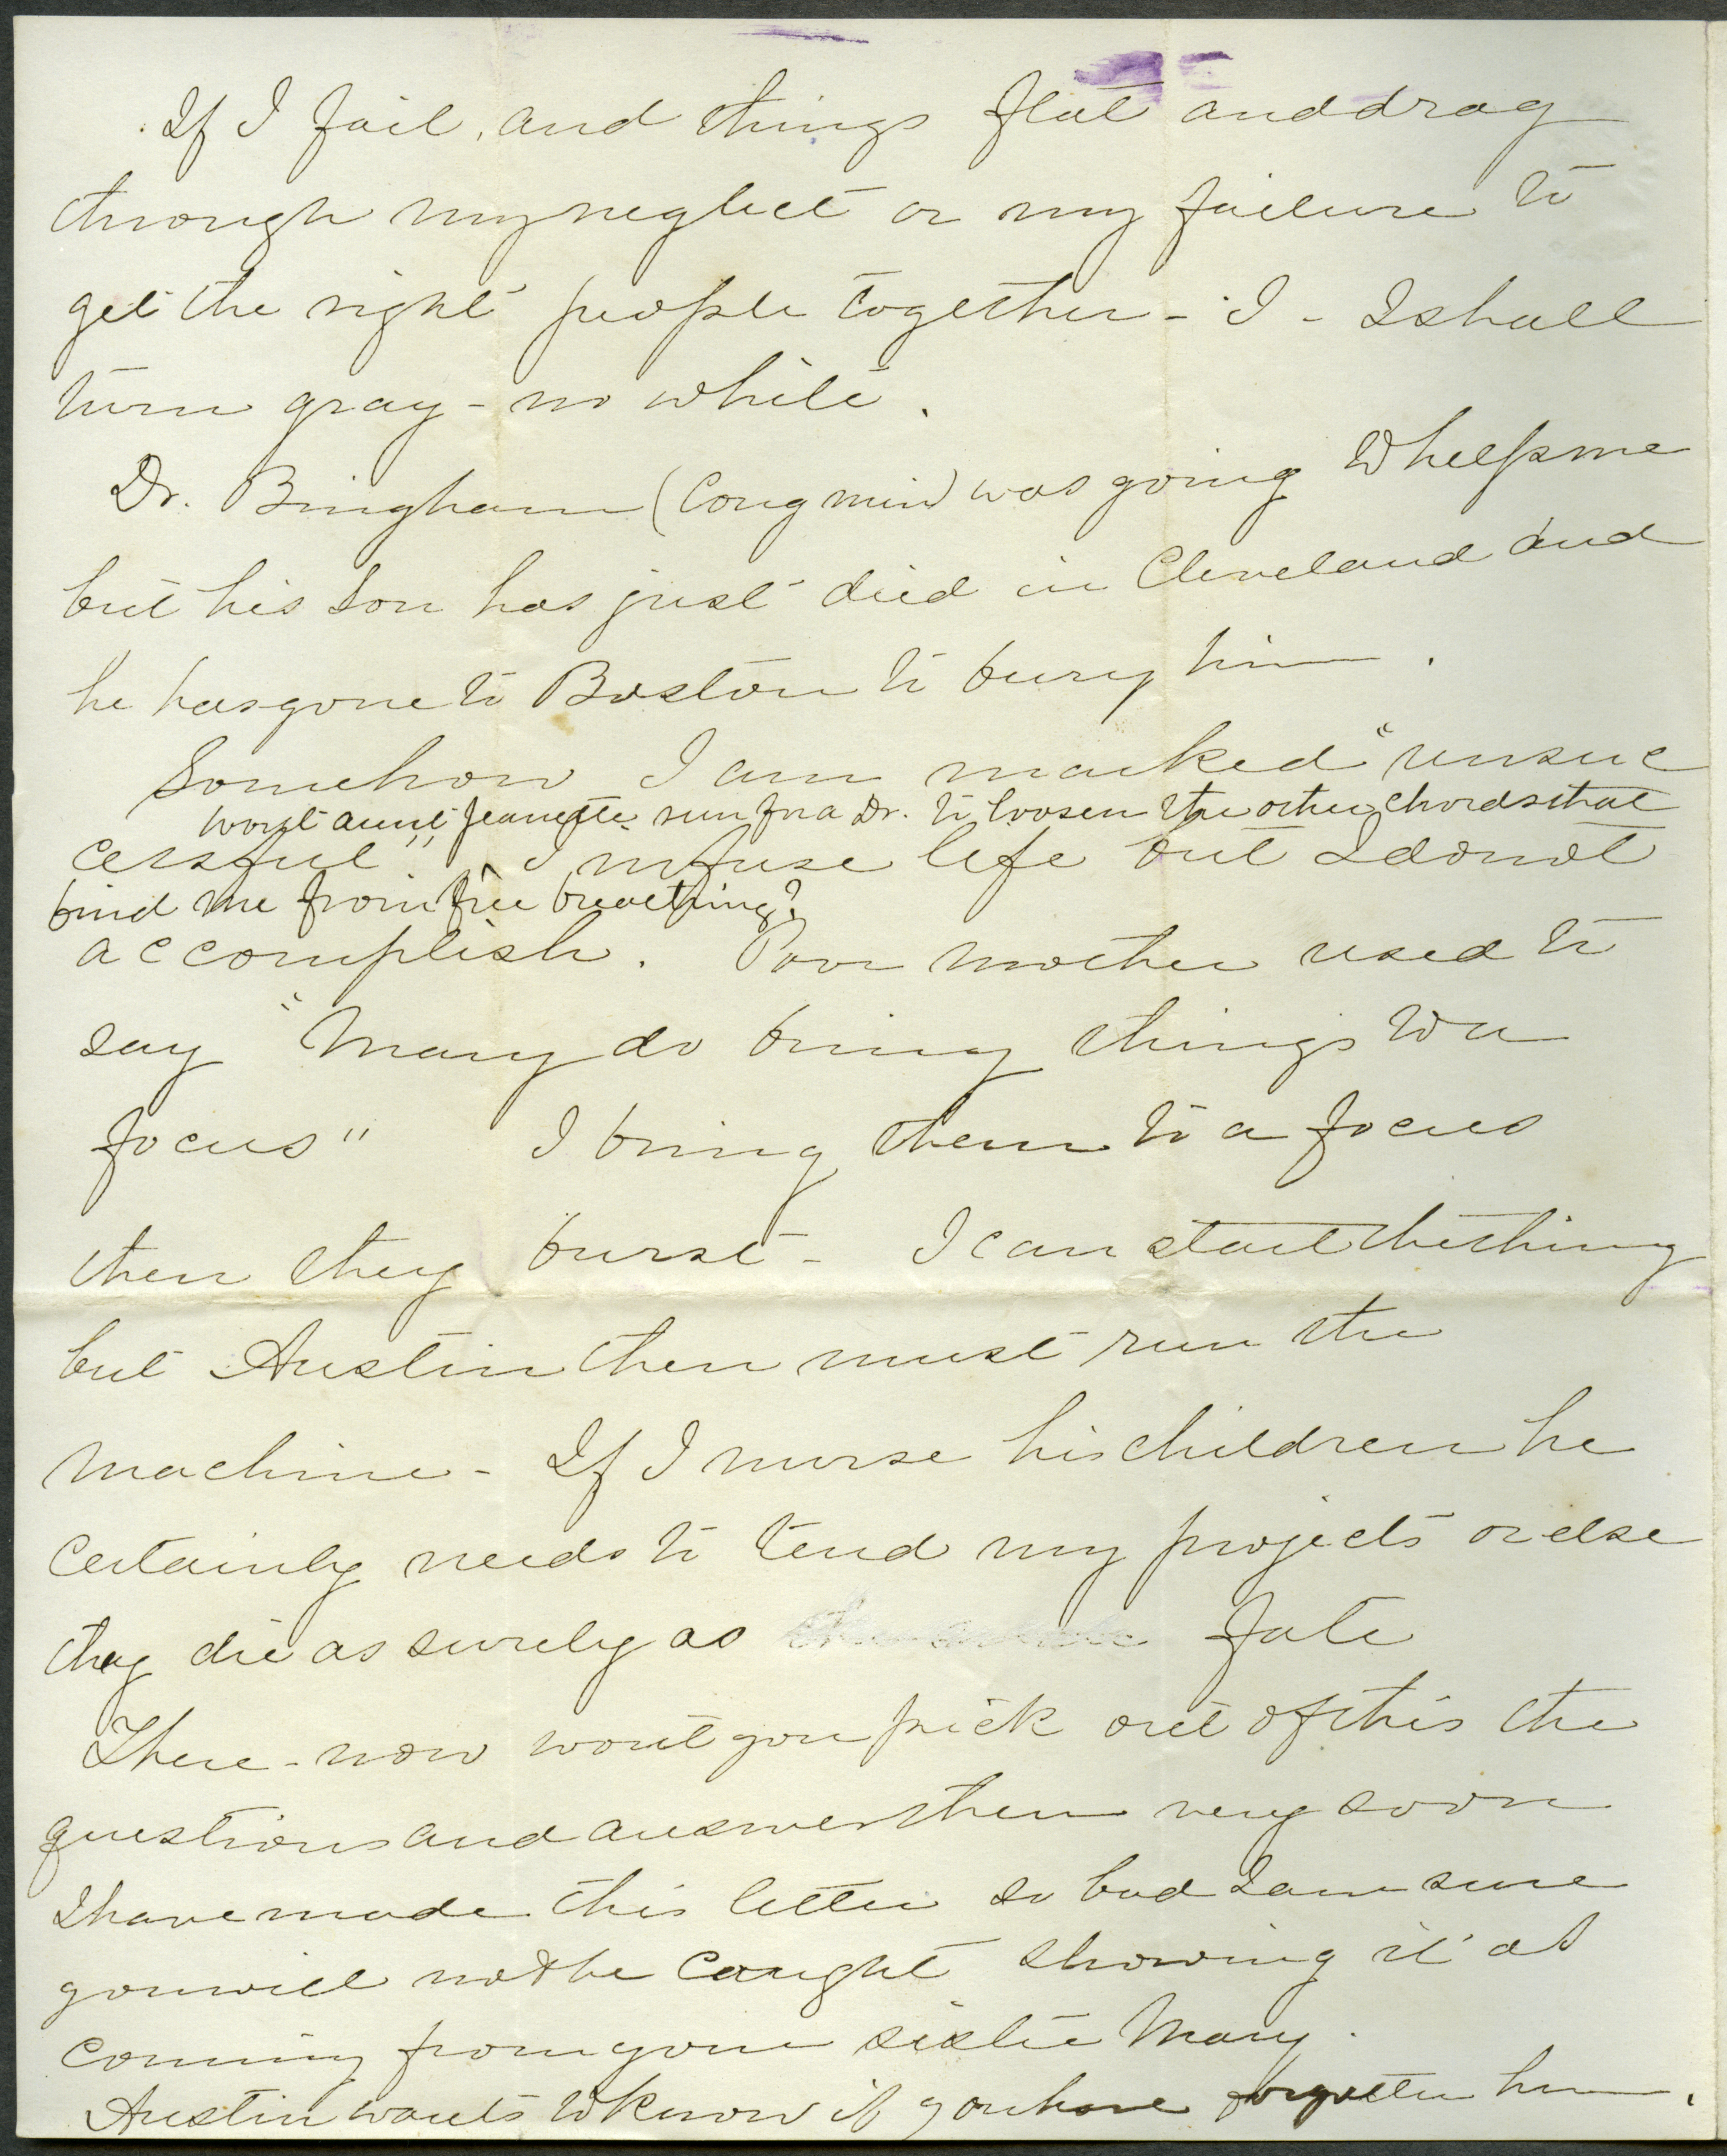 If I fail, and things flat and drag
through my neglect or my failure to
get the right people together - I - I shall
turn gray - no white.
Dr. Bingham (Cong min) was going to help me
but his son has just died in Cleveland and
he has gone to Boston to bury him.
Somehow I am marked "unsuc
wont aunt Jeanette run for a Dr. to loosen the other chords that
cessful" I infuse life but I do not
bind me from free breathing?
accomplish. Poor mother used to
say "Mary do bring things to a
focus" I bring them to a focus
then they burst - I can start the thing
but Austin then must run the
machine - If I nurse his children he
certainly needs to tend my projects or else
they die as surely as fate
There - now wont you pick out of this the
questions and answer them very soon
I have made this letter so bad I am sure
you will not be caught showing it as
coming from your sister Mary.
Austin wants to know if you have forgotten him.